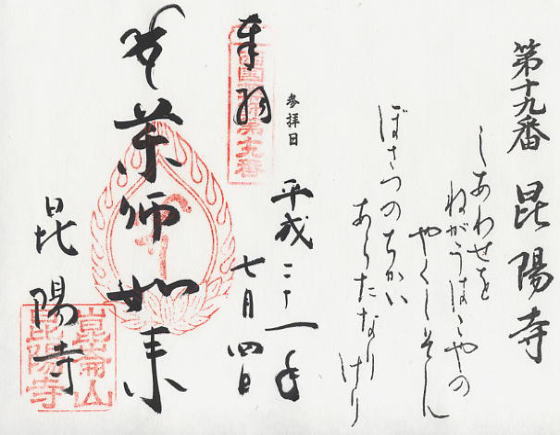 第十九番 昆陽寺
しあわせを
ねがうはこやの
やくしそん
ぼさつのちかい
あらたなりけり
参拝日
平成二十一年
七月四日
奉拝
西国薬師第十九番
薬師如来
昆陽寺
崑崙山
昆陽寺